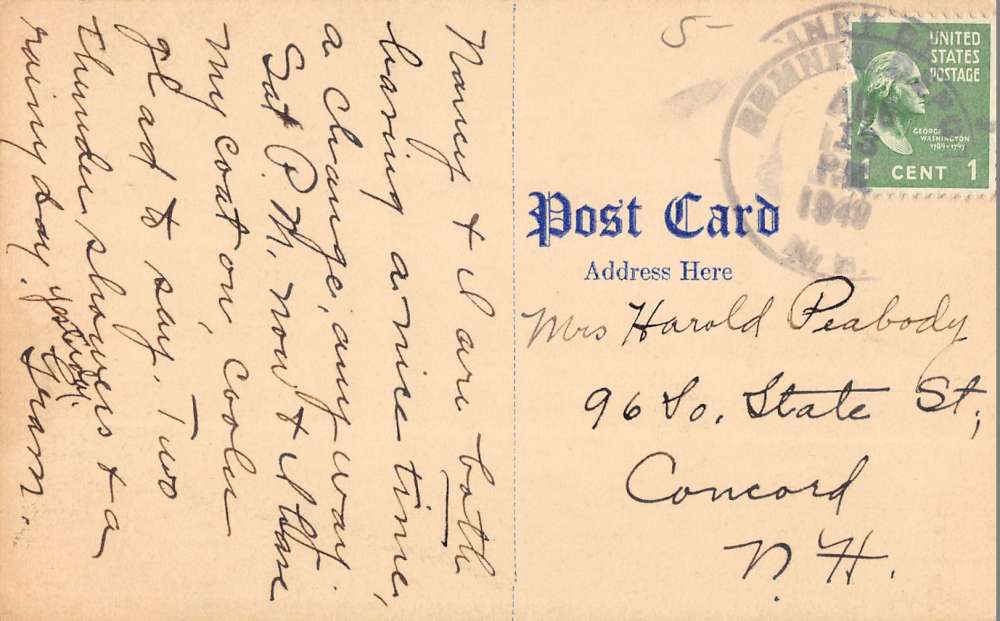 Nancy & I are both
having a nice time,
a change, any way.
Sat P.M. now & I have
my coat on, cooler
glad to say. Two
thunder showers & a
rainy day. yesterday. Gram.
5-
RUMNEY DEPOT
AUG
13
PM
1949
N.H.
UNITED
STATES
POSTAGE
GEORGE
WASHINGTON
1789-1797
1 CENT 1
Post Card
Address Here
Mrs Harold Peabody
96 So. State St,
Concord
N.H.